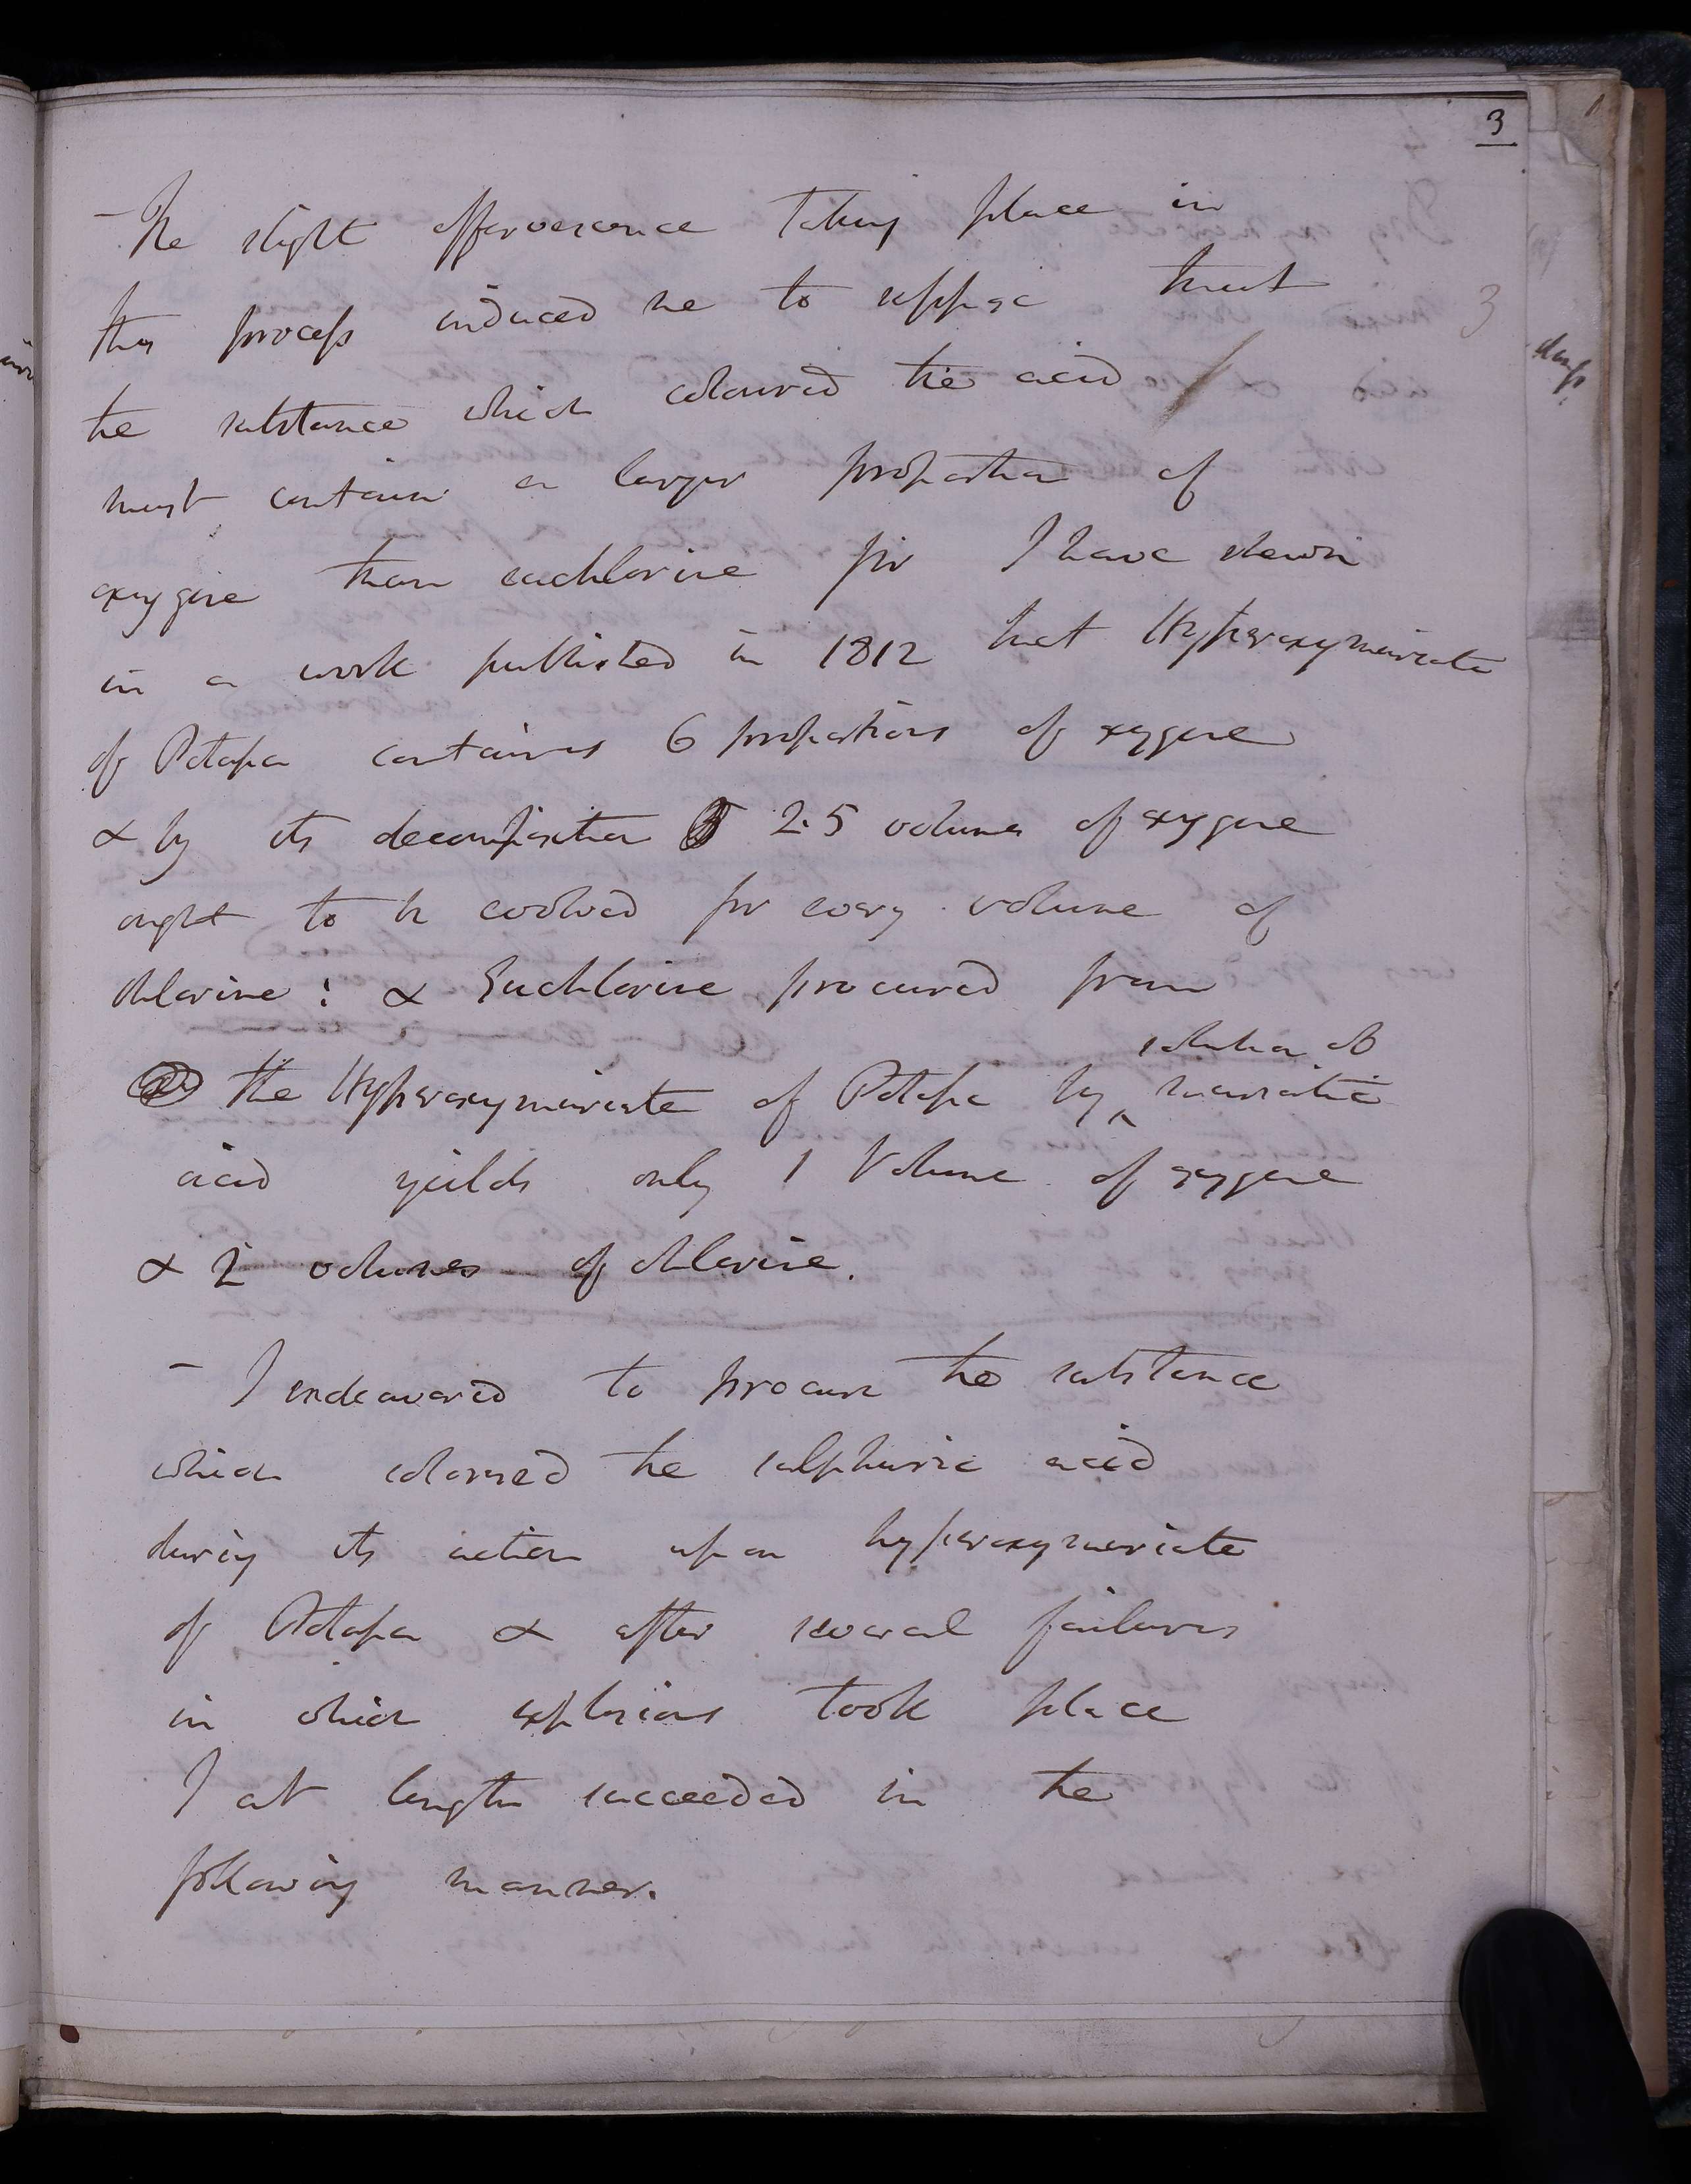 3
- The slight effervescence taking place in
this process induced me to suppose that
3
the substance which coloured the acid
must contain a larger proportion of
oxygene than euchlorine for I have shewn
in a work published in 1812 that Hyperoxymuriate
of Potassa contains 6 proportions of oxygene
& by its decomposition 2.5 volumes of oxygene
ought to be evolved for every volume of
chlorine: & Euchlorine procured from
solution of
the Hyperoxymuriate of Potassa by ^ muriatic
acid yeilds only 1 Volume of oxygene
& 2 volumes of chlorine.
- I endeavored to procure the substance
which colored the sulphuric acid
during its action upon hyperoxymuriate
of Potassa & after several failures
in which explosions took place
I at length succeeded in the
following manner.